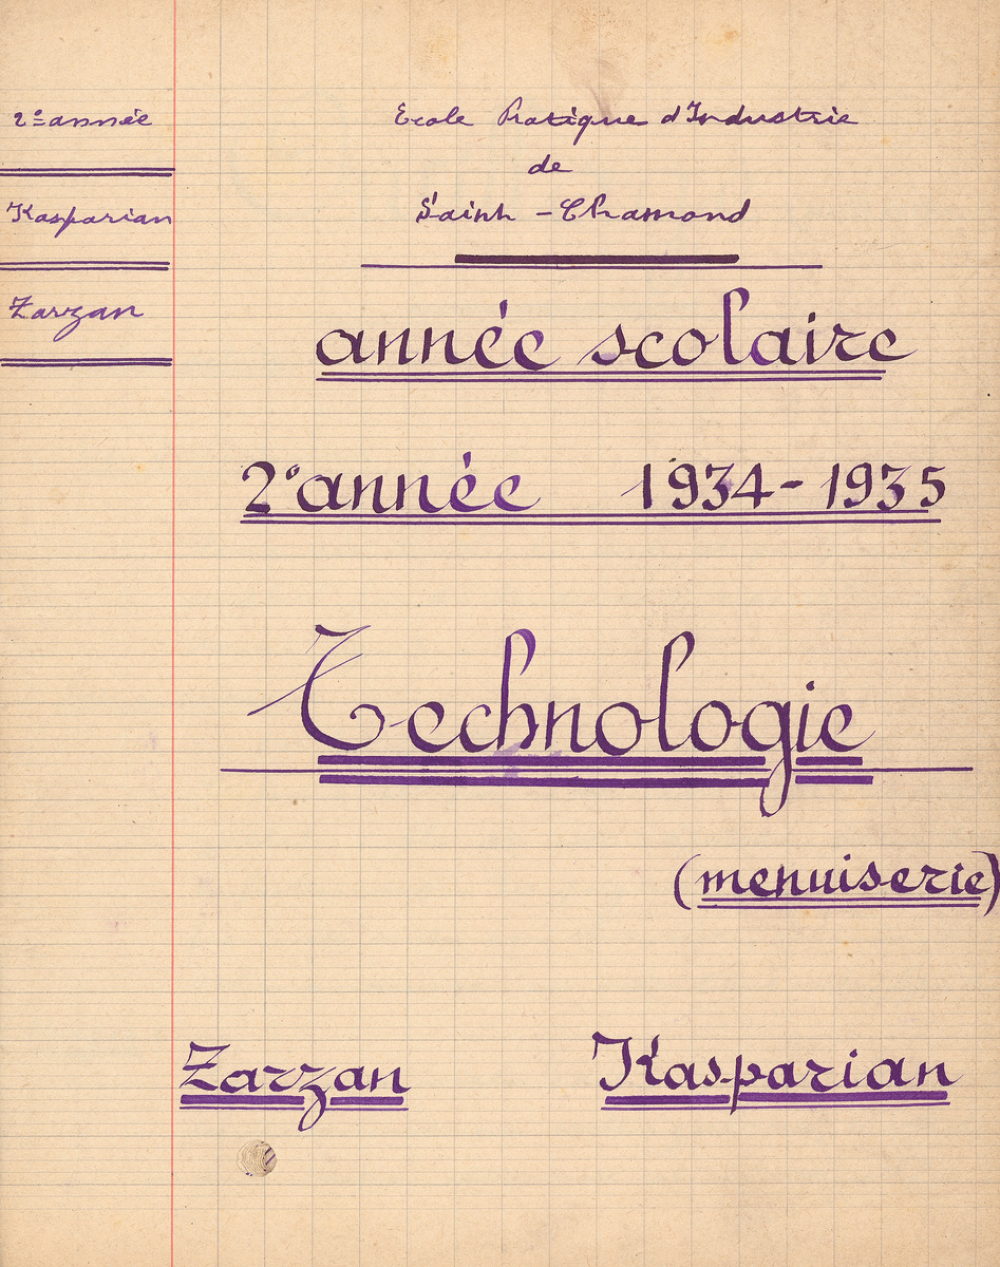 2e année
Kasparian
Zarzan
Ecole Pratique d'Industrie
de
Saint-Chamond
année scolaire
2e année 1934-1935
Technologie
(menuiserie)
Zarzan Kasparian